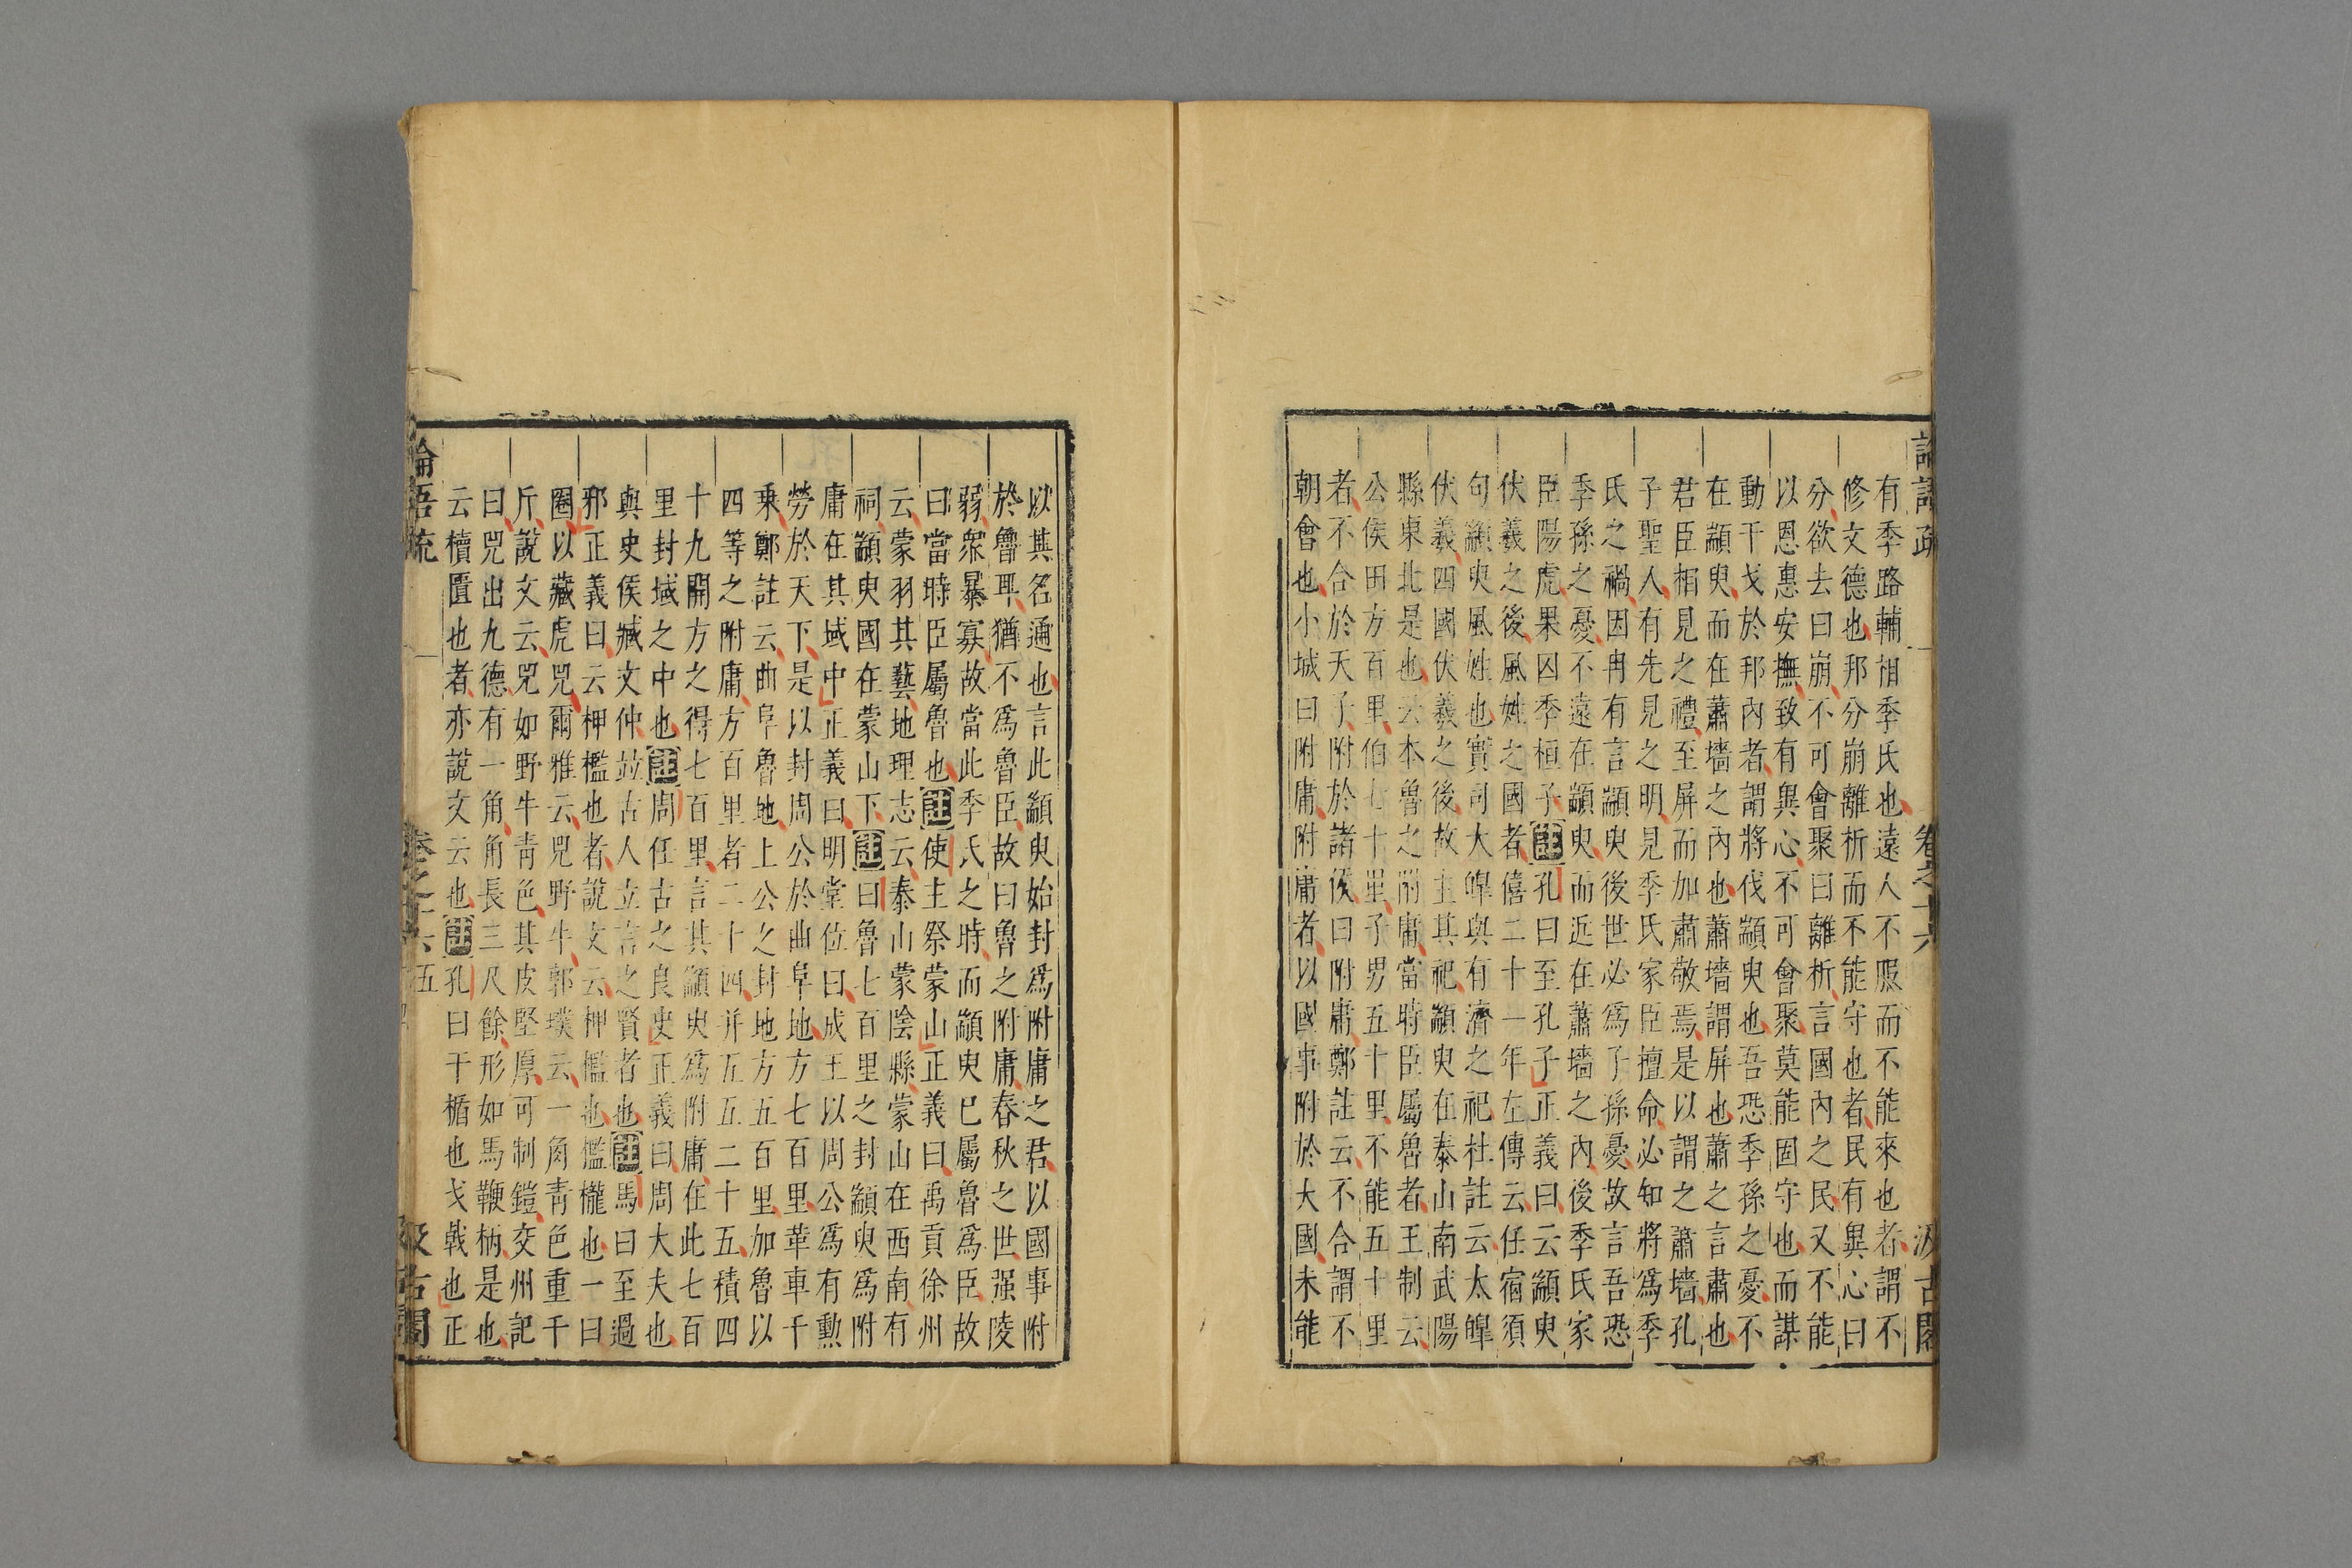 論語疏 卷之十六 汲古閣
有季路輔相季氏也遠人不服而不能來也者謂不
修文德也邦分崩離析而不能守也者民有異心曰
分欲去曰崩不可會聚曰離析言國內之民又不能
以恩惠安撫致有異心不可會聚莫能固守也而謀
動干戈於邦內者謂將伐顓臾也吾恐季孫之憂不
在顓臾而在蕭墻之內也蕭墻謂屏也蕭之言肅也
君臣相見之禮至屏而加肅敬焉是以謂之蕭墻孔
子聖人有先見之明見季氏家臣擅命必知將爲季
氏之禍因冉有言顓臾後世必爲子孫憂故言吾恐
季孫之憂不遠在顓臾而近在蕭墻之內後季氏家
臣陽虎果囚季桓子註孔曰至孔子正義曰云顓臾
伏羲之後風姓之國者僖二十一年左傳云任宿須
句顓臾風姓也實司大皥與有濟之祀杜註云太皥
伏羲四國伏羲之後故主其祀顓臾在泰山南武陽
縣東北是也云本魯之附庸當時臣屬魯者王制云
公侯田方百里伯七十里子男五十里不能五十里
者不合於天子附於諸侯曰附庸鄭註云不合謂不
朝會也小城曰附庸附庸者以國事附於大國未能
以其名通也言此顓臾始封爲附庸之君以國事附
於魯耳猶不爲魯臣故曰魯之附庸春秋之世强陵
弱衆暴寡故當此季氏之時而顓臾已屬魯爲臣故
曰當時臣屬魯也註使主祭蒙山正義曰禹貢徐州
云蒙羽其藝地理志云泰山蒙陰縣蒙山在西南有
祠顓臾國在蒙山下註曰魯七百里之封顓臾爲附
庸在其域中正義曰明堂位曰成王以周公爲有勳
勞於天下是以封周公於曲阜地方七百里革車千
乘鄭註云曲阜魯地上公之封地方五百里加魯以
四等之附庸方百里者二十四并五五二十五積四
十九開方之得七百里言其顓臾爲附庸在此七百
里封域之中也註周任古之良史正義曰周大夫也
與史侯臧文仲竝古人立言之賢者也註馬曰至過
邪正義曰云柙檻也者說文云柙檻也檻櫳也一曰
圈以藏虎兕爾雅云兕野牛郭璞云一角青色重千
斤說文云兕如野牛青色其皮堅厚可制鎧交州記
曰兕出九德有一角角長三尺餘形如馬鞭柄是也
云櫝匱也者亦說文云也註孔曰干楯也戈戟也正
論語疏 卷之十六 五 汲古閣